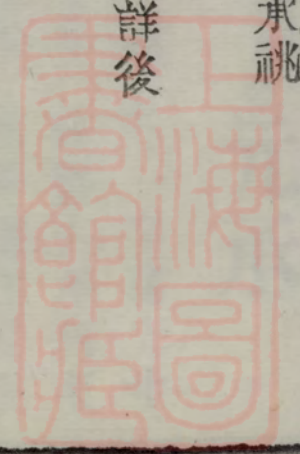 承祧
詳後
上海圖
書館藏